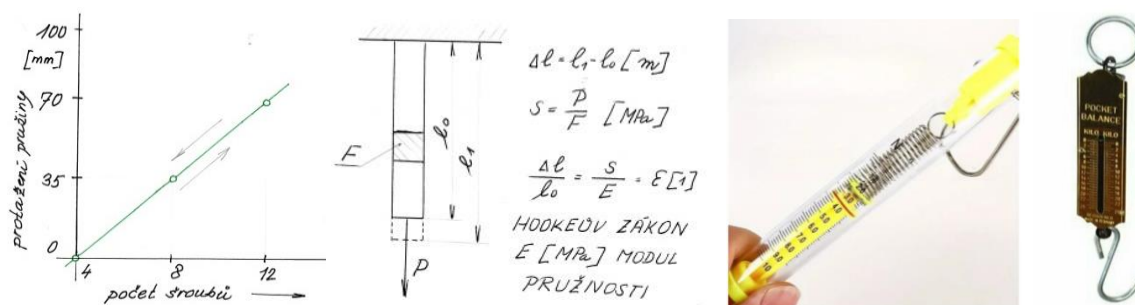 100
[mm]
70
35
0
protažení pružiny
4
8
12
počet šroubů
F
l₀
l₁
P
Δl = l₁ - l₀ [m]
S = P/F [MPa]
Δl/l₀ = S/E = ε [1]
HOOKEŮV ZÁKON
E [MPa] MODUL
PRUŽNOSTI
N
POCKET
BALANCE
KILO KILO